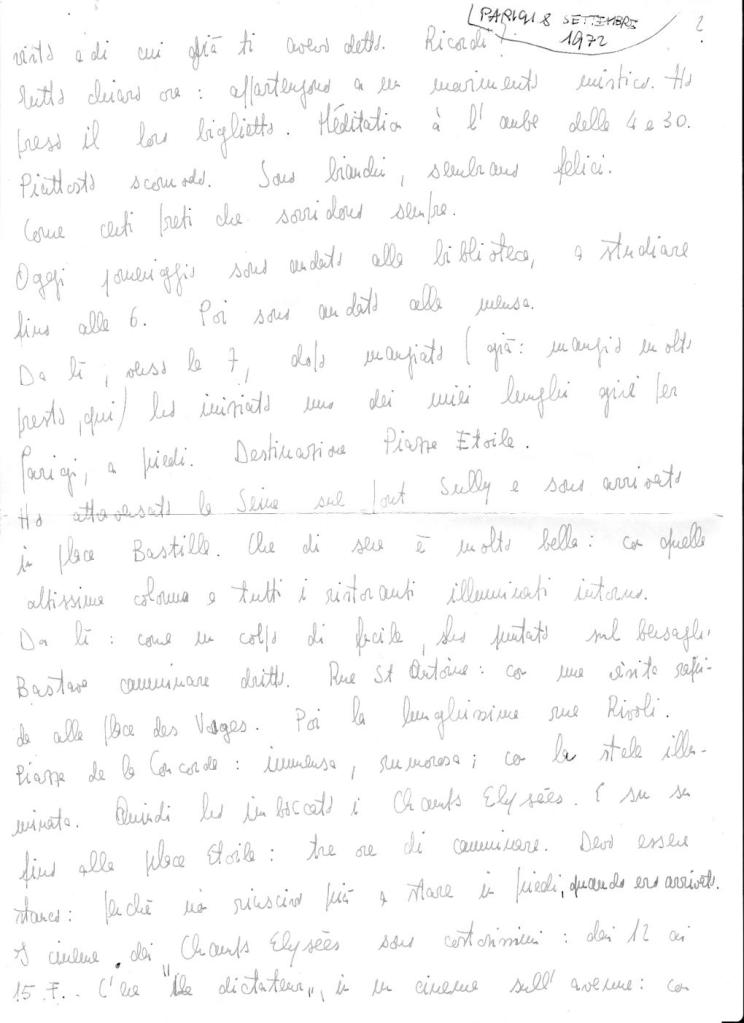 PARIGI 8 SETTEMBRE 1972
2
visto e di cui già ti avevo detto. Ricordi?
Tutto chiaro ora: appartengono a un movimento mistico. Ho
preso il loro biglietto. Méditation à l'aube delle 4 e 30.
Piuttosto scomodo. Sono bianchi, sembrano felici.
Come certi preti che sorridono sempre.
Oggi pomeriggio sono andato alla biblioteca, a studiare
fino alle 6. Poi sono andato alla mensa.
Da lì, verso le 7, dopo mangiato (già: mangio molto
presto, qui) ho iniziato uno dei miei lunghi giri per
Parigi, a piedi. Destinazione Piazza Etoile.
Ho attraversato la Seine sul Pont Sully e sono arrivato
in place Bastille. Che di sera è molto bella: con quella
altissima colonna e tutti i ristoranti illuminati intorno.
Da lì: come un colpo di fucile, ho puntato sul bersaglio.
Bastava camminare dritto. Rue St Antoine: con una visita rapi-
da alla place des Vosges. Poi la lunghissima rue Rivoli.
Piazza de la Concorde: immensa, rumorosa; con la stele illu-
minata. Quindi ho imboccato i Champs Elysées. E su su
fino alla place Etoile: tre ore di camminare. Devo essere
stanco: perché non riuscivo più a stare in piedi, quando ero arrivato.
I cinema dei Champs Elysées sono costosissimi: dai 12 ai
15 F. C'era "Le dictateur", in un cinema sull'avenue: con